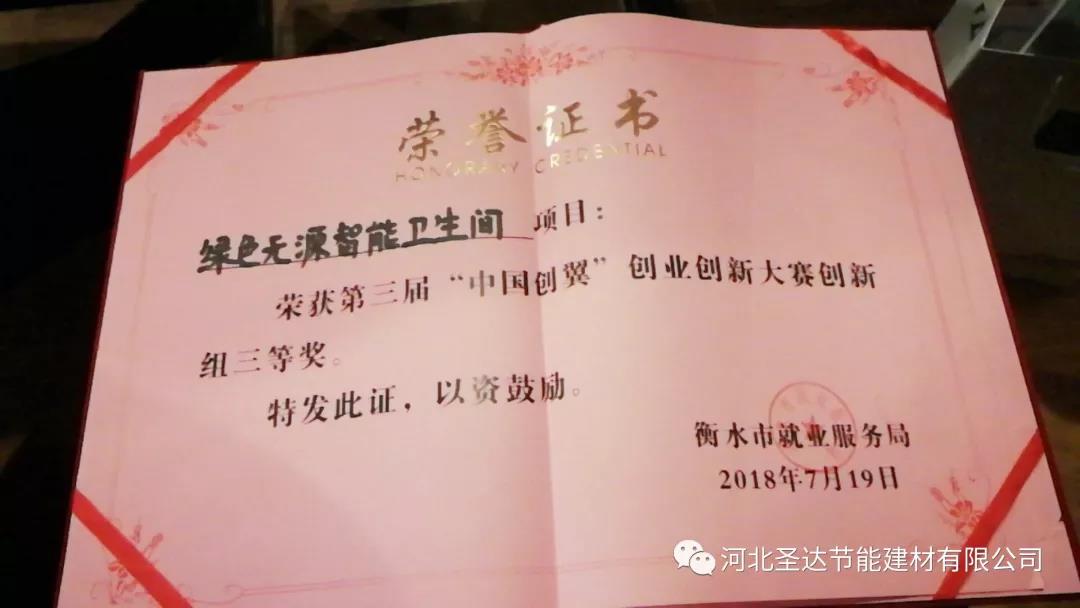 荣誉证书
HONORARY CREDENTIAL
绿色无源智能卫生间 项目：
荣获第三届“中国创翼”创业创新大赛创新
组三等奖。
特发此证，以资鼓励。
衡水市就业服务局
2018年7月19日
河北圣达节能建材有限公司